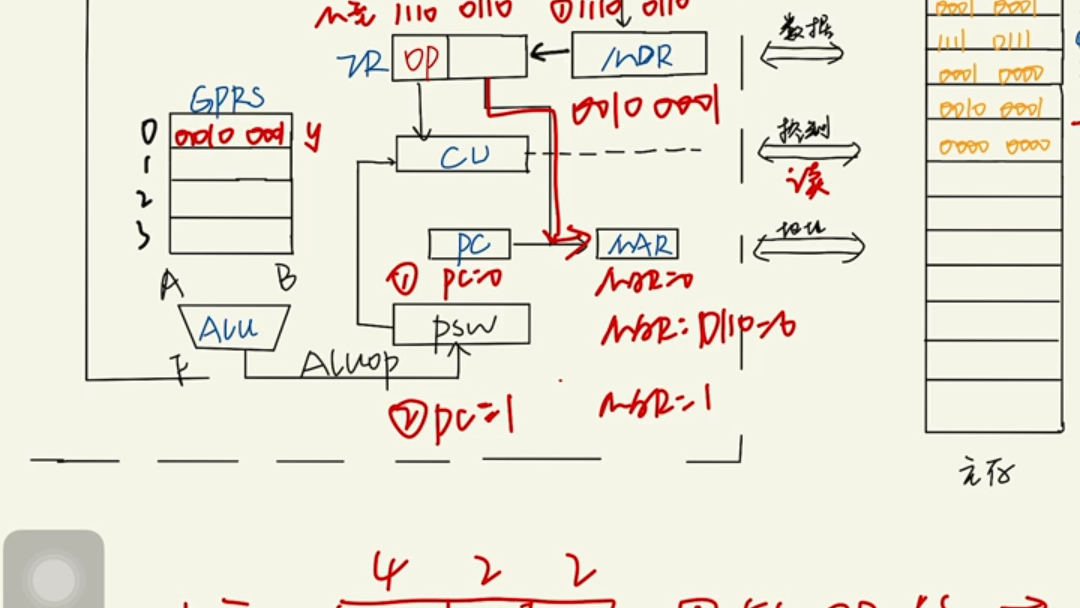 1110 0110 ① 1110 0110
IR OP
MDR
数据
0001 0001
1111 0111
0001 0000
0010 0001
0000 0000
0010 0001
GPRS
0 0010 0001 y
1
2
3
CU
控制
读
PC
MAR
地址
① PC=0
MAR=0
A B
ALU
PSW
MAR: 0110=6
F
ALUop
② PC=1
MAR=1
主存
4 2 2